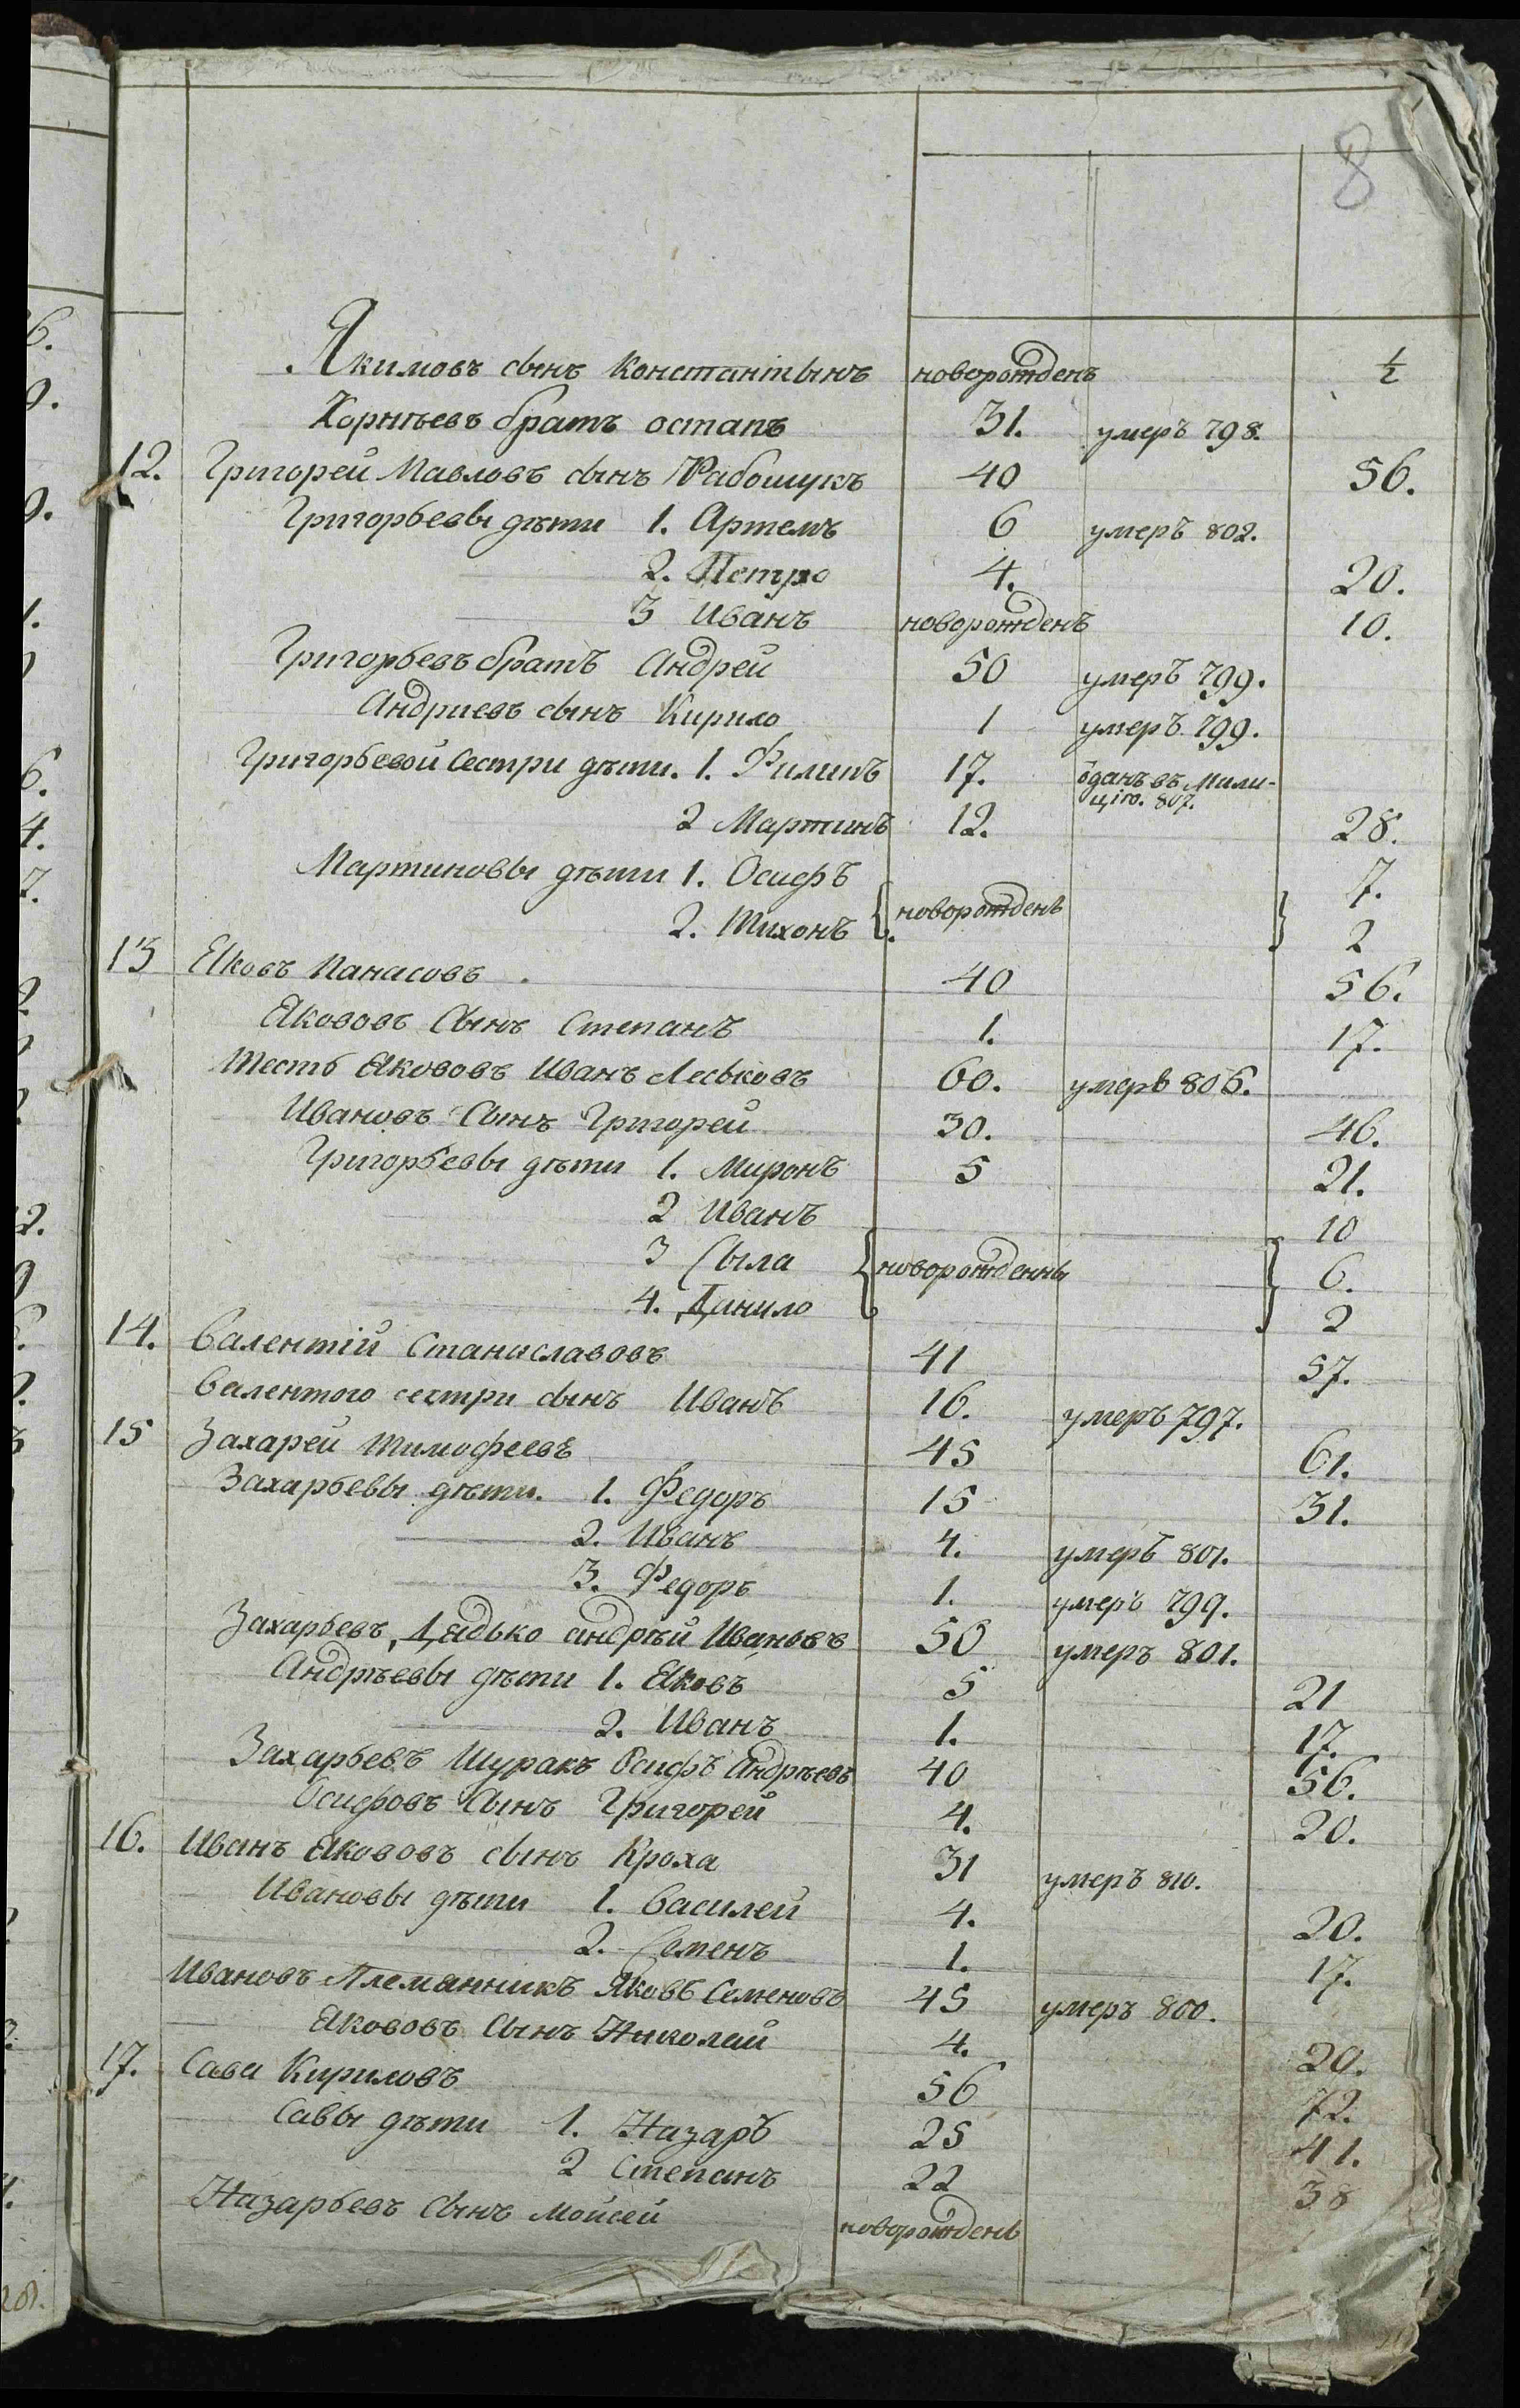 8
Якимовъ сынъ Константынъ новорожденъ ½
Корнѣевъ братъ остапъ 31. умеръ 798.
12. Григорей Павловъ сынъ Рабошукъ 40 56.
Григорьевы дѣти 1. Артемъ 6 умеръ 802.
2. Петро 4. 20.
3 Иванъ новорожденъ 10.
Григорьевъ братъ Андрей 50 умеръ 799.
Андриевъ сынъ Кирило 1 умеръ 799.
Григорьевой Сестри дѣти. 1. Филипъ 17. ѿданъ въ мили-
цію. 807.
2 Мартинъ 12. 28.
Мартиновы дѣти 1. Осифъ 7.
2. Тихонъ новорожденъ 2
13 Яковъ Панасовъ 40 56.
Якововъ Сынъ Степанъ 1. 17.
Тесть Якововъ Иванъ Леськовъ 60. умеръ 806.
Ивановъ Сынъ Григорей 30. 46.
Григорьевы дѣти 1. Миронъ 5 21.
2 Иванъ 10
3 Сыла новорожденны 6.
4. Данило 2
14. Валентій Станиславовъ 41 57.
Валентого сестри сынъ Иванъ 16. умеръ 797.
15 Захарей Тимофеевъ 45 61.
Захарьевы дѣти. 1. Федоръ 15 31.
2. Иванъ 4. умеръ 801.
3. Федоръ 1. умеръ 799.
Захарьевъ Дядько андрѣй Ивановъ 50 умеръ 801.
Андрѣевы дѣти 1. Яковъ 5 21
2. Иванъ 1. 17.
Захарьевъ Шуракъ Осифъ Андрѣевъ 40 56.
Осифовъ Сынъ Григорей 4. 20.
16. Иванъ Якововъ сынъ Кроха 31 умеръ 810.
Ивановы дѣти 1. Василей 4. 20.
2. Семенъ 1. 17.
Ивановъ Племянникъ Яковъ Семеновъ 45 умеръ 800.
Якововъ Сынъ Николай 4. 20.
17. Сава Кириловъ 56 72.
Савы дѣти 1. Назаръ 25 41.
2 Степанъ 22 38
Назарьевъ Сынъ Мойсей новорожденъ